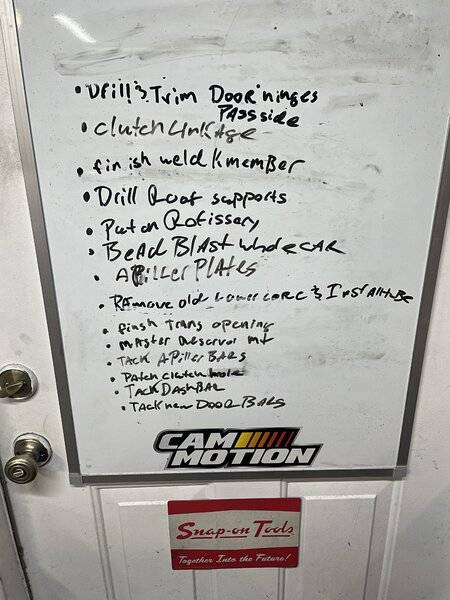 • Drill & Trim Door hinges
PASSside
• Clutch Linkage
• finish weld KmemBer
• Drill Roof supports
• Put on Rotissery
• BeAd BlAst whole CAR
• A Piller PlAtes
• RAmove old Lower & InstAll tube
• finsh Trans opening
• mAster Reservoi mt
• TACK APiller BARS
• PAtch clutch hole
• TACK DAshBAR
• TACK new Door BARS
CAM
MOTION
Snap-on Tools
Together Into the Future!